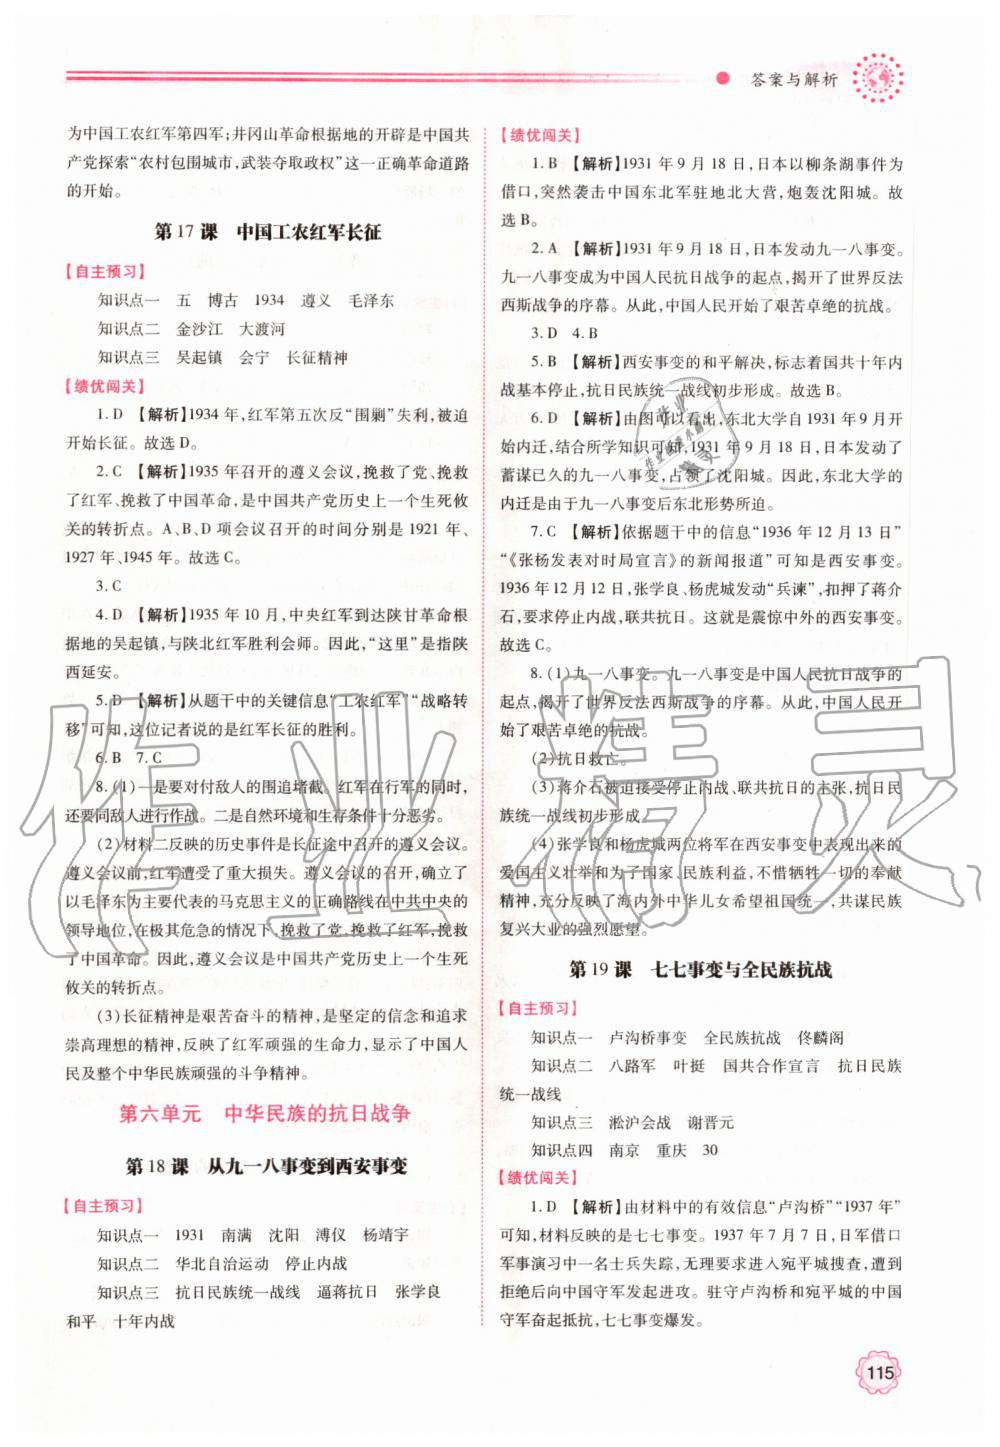 答案与解析
为中国工农红军第四军;井冈山革命根据地的开辟是中国共
产党探索“农村包围城市,武装夺取政权”这一正确革命道路
的开始。
第 17 课　中国工农红军长征
【自主预习】
知识点一　五　博古　1934　遵义　毛泽东
知识点二　金沙江　大渡河
知识点三　吴起镇　会宁　长征精神
【绩优闯关】
1. D　【解析】1934 年,红军第五次反“围剿”失利,被迫
开始长征。故选 D。
2. C　【解析】1935 年召开的遵义会议,挽救了党、挽救
了红军、挽救了中国革命,是中国共产党历史上一个生死攸
关的转折点。A、B、D 项会议召开的时间分别是 1921 年、
1927 年、1945 年。故选 C。
3. C
4. D　【解析】1935 年 10 月,中央红军到达陕甘革命根
据地的吴起镇,与陕北红军胜利会师。因此,“这里”是指陕
西延安。
5. D　【解析】从题干中的关键信息“工农红军”“战略转
移”可知,这位记者说的是红军长征的胜利。
6. B　7. C
8. (1)一是要对付敌人的围追堵截。红军在行军的同时,
还要同敌人进行作战。二是自然环境和生存条件十分恶劣。
(2)材料二反映的历史事件是长征途中召开的遵义会议。
遵义会议前,红军遭受了重大损失。遵义会议的召开,确立了
以毛泽东为主要代表的马克思主义的正确路线在中共中央的
领导地位,在极其危急的情况下,挽救了党,挽救了红军,挽救
了中国革命。因此,遵义会议是中国共产党历史上一个生死
攸关的转折点。
(3)长征精神是艰苦奋斗的精神,是坚定的信念和追求
崇高理想的精神,反映了红军顽强的生命力,显示了中国人
民及整个中华民族顽强的斗争精神。
第六单元　中华民族的抗日战争
第 18 课　从九一八事变到西安事变
【自主预习】
知识点一　1931　南满　沈阳　溥仪　杨靖宇
知识点二　华北自治运动　停止内战
知识点三　抗日民族统一战线　逼蒋抗日　张学良
和平　十年内战
【绩优闯关】
1. B　【解析】1931 年 9 月 18 日,日本以柳条湖事件为
借口,突然袭击中国东北军驻地北大营,炮轰沈阳城。故
选 B。
2. A　【解析】1931 年 9 月 18 日,日本发动九一八事变。
九一八事变成为中国人民抗日战争的起点,揭开了世界反法
西斯战争的序幕。从此,中国人民开始了艰苦卓绝的抗战。
3. D　4. B
5. B　【解析】西安事变的和平解决,标志着国共十年内
战基本停止,抗日民族统一战线初步形成。故选 B。
6. D　【解析】由图可以看出,东北大学自 1931 年 9 月开始
内迁,结合所学知识可知,1931 年 9 月 18 日,日本发动了
蓄谋已久的九一八事变,占领了沈阳城。因此,东北大学的
内迁是由于九一八事变后东北形势所迫。
7. C　【解析】依据题干中的信息“1936 年 12 月 13 日”
“《张杨发表对时局宣言》的新闻报道”可知是西安事变。
1936 年 12 月 12 日,张学良、杨虎城发动“兵谏”,扣押了蒋介
石,要求停止内战,联共抗日。这就是震惊中外的西安事变。
故选 C。
8. (1)九一八事变。九一八事变是中国人民抗日战争的
起点,揭开了世界反法西斯战争的序幕。从此,中国人民开
始了艰苦卓绝的抗战。
(2)抗日救亡。
(3)蒋介石被迫接受停止内战、联共抗日的主张,抗日民
族统一战线初步形成。
(4)张学良和杨虎城两位将军在西安事变中表现出来的
爱国主义壮举和为了国家、民族利益,不惜牺牲一切的奉献
精神,充分反映了海内外中华儿女希望祖国统一,共谋民族
复兴大业的强烈愿望。
第 19 课　七七事变与全民族抗战
【自主预习】
知识点一　卢沟桥事变　全民族抗战　佟麟阁
知识点二　八路军　叶挺　国共合作宣言　抗日民族
统一战线
知识点三　淞沪会战　谢晋元
知识点四　南京　重庆　30
【绩优闯关】
1. D　【解析】由材料中的有效信息“卢沟桥”“1937 年”
可知,材料反映的是七七事变。1937 年 7 月 7 日,日军借口
军事演习中一名士兵失踪,无理要求进入宛平城搜查,遭到
拒绝后向中国守军发起进攻。驻守卢沟桥和宛平城的中国
守军奋起抵抗,七七事变爆发。
115
作业精灵